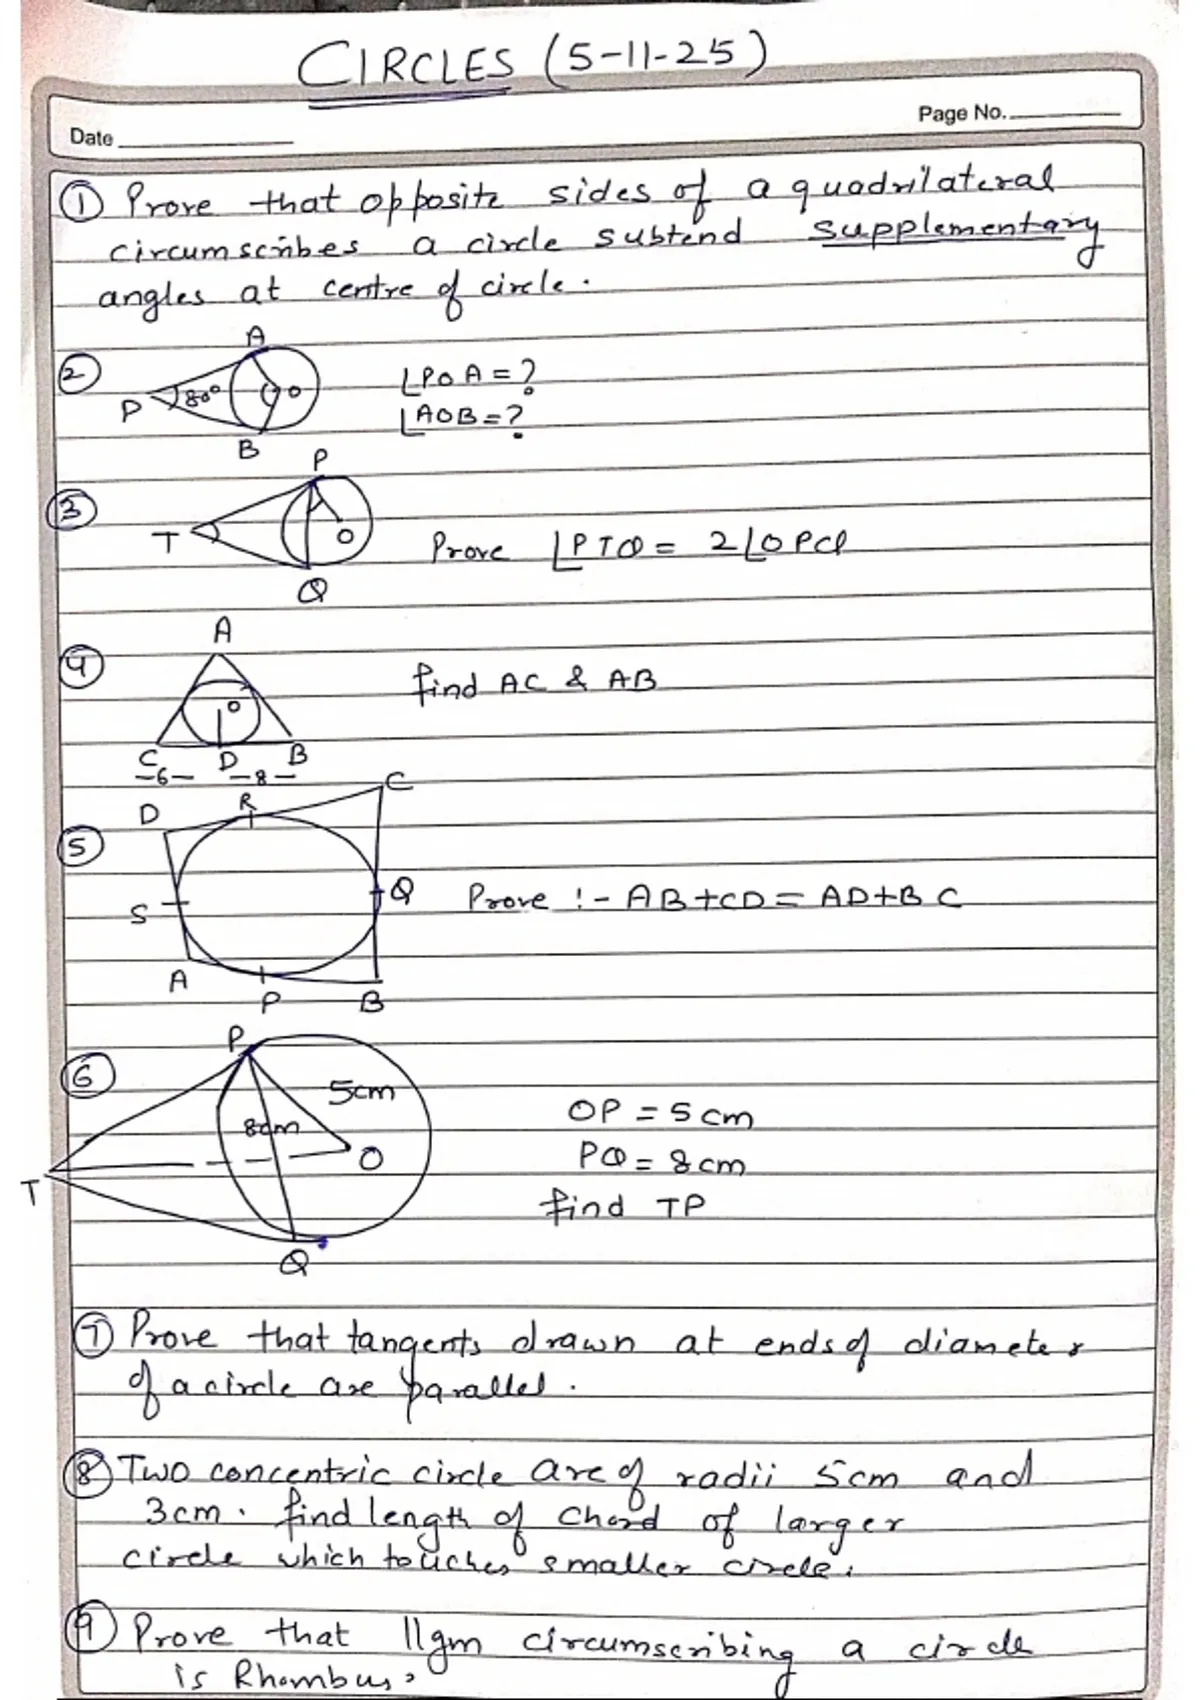 CIRCLES (5-11-25)
Page No.
Date
① Prove that opposite sides of a quadrilateral
circumscribes a circle subtend supplementary
angles at centre of circle.
A
② 80° O ∠POA = ?
P ∠AOB = ?
B
P
③
T O Prove ∠PTQ = 2∠OPQ
Q
A
④ find AC & AB
O
C D B
-6- -8-
C
D R
⑤
S Q Prove :- AB+CD = AD+BC
A P B
P
⑥ 5cm
8cm OP = 5cm
O PQ = 8cm
T find TP
Q
⑦ Prove that tangents drawn at ends of diameter
of a circle are parallel.
⑧ Two concentric circle are of radii 5cm and
3cm. find length of chord of larger
circle which touches smaller circle.
⑨ Prove that ||gm circumscribing a circle
is Rhombus.